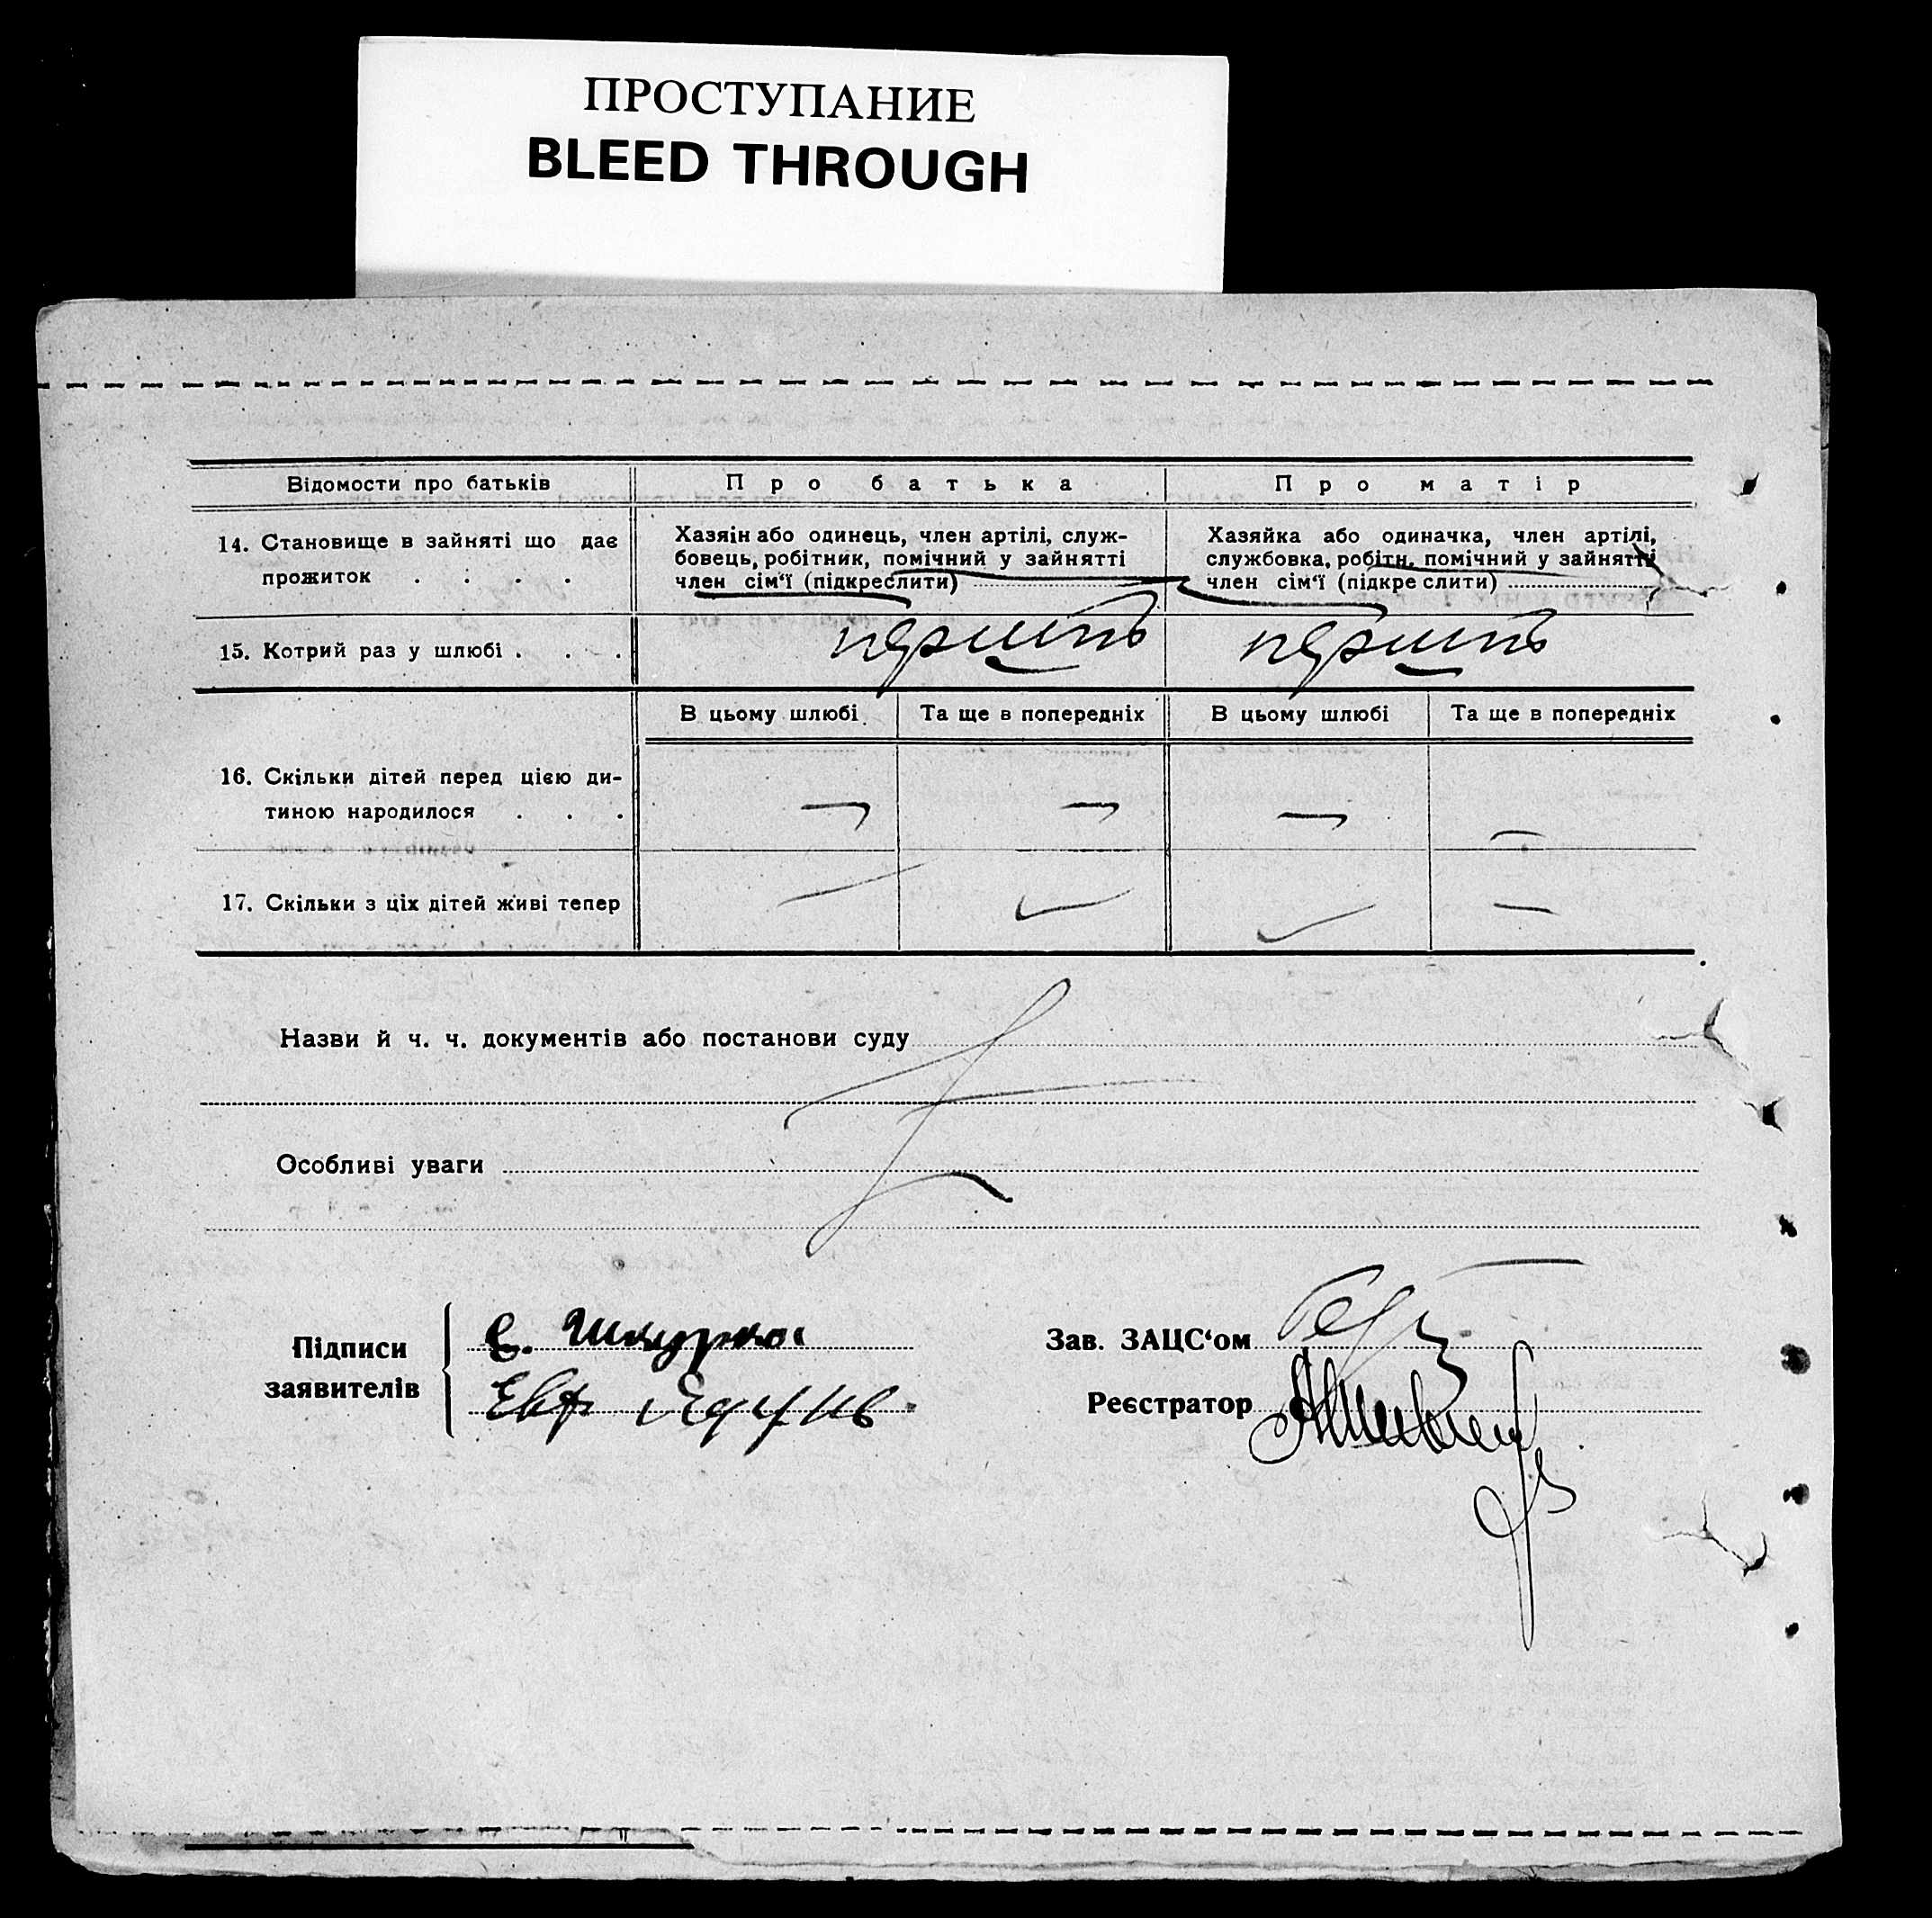 ПРОСТУПАНИЕ
BLEED THROUGH
Відомости про батьків
Про батька
Про матір
14. Становище в зайняті що дає
прожиток . . . .
Хазяін або одинець, член артілі, служ-
бовець, робітник, помічний у зайнятті
член сім‘ї (підкреслити)
Хазяйка або одиначка, член артілі,
службовка, робітн. помічний у зайнятті
член сім‘ї (підкре слити)
15. Котрий раз у шлюбі . . .
В цьому шлюбі
Та ще в попередніх
В цьому шлюбі
Та ще в попередніх
16. Скільки дітей перед цією ди-
тиною народилося . . .
— — — —
17. Скільки з ціх дітей живі тепер
— — — —
Назви й ч. ч. документів або постанови суду
Особливі уваги
Підписи
заявителів
Зав. ЗАЦС‘ом
Реєстратор